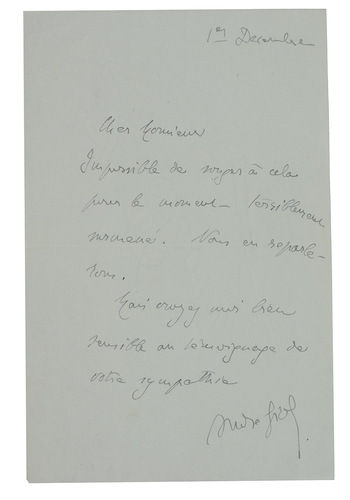 1er Decembre
Cher Monsieur
Impossible de songer à cela
pour le moment – terriblement
surmené. Nous en reparle-
rons.
Mais croyez moi bien
sensible au témoignage de
votre sympathie
André Gide.